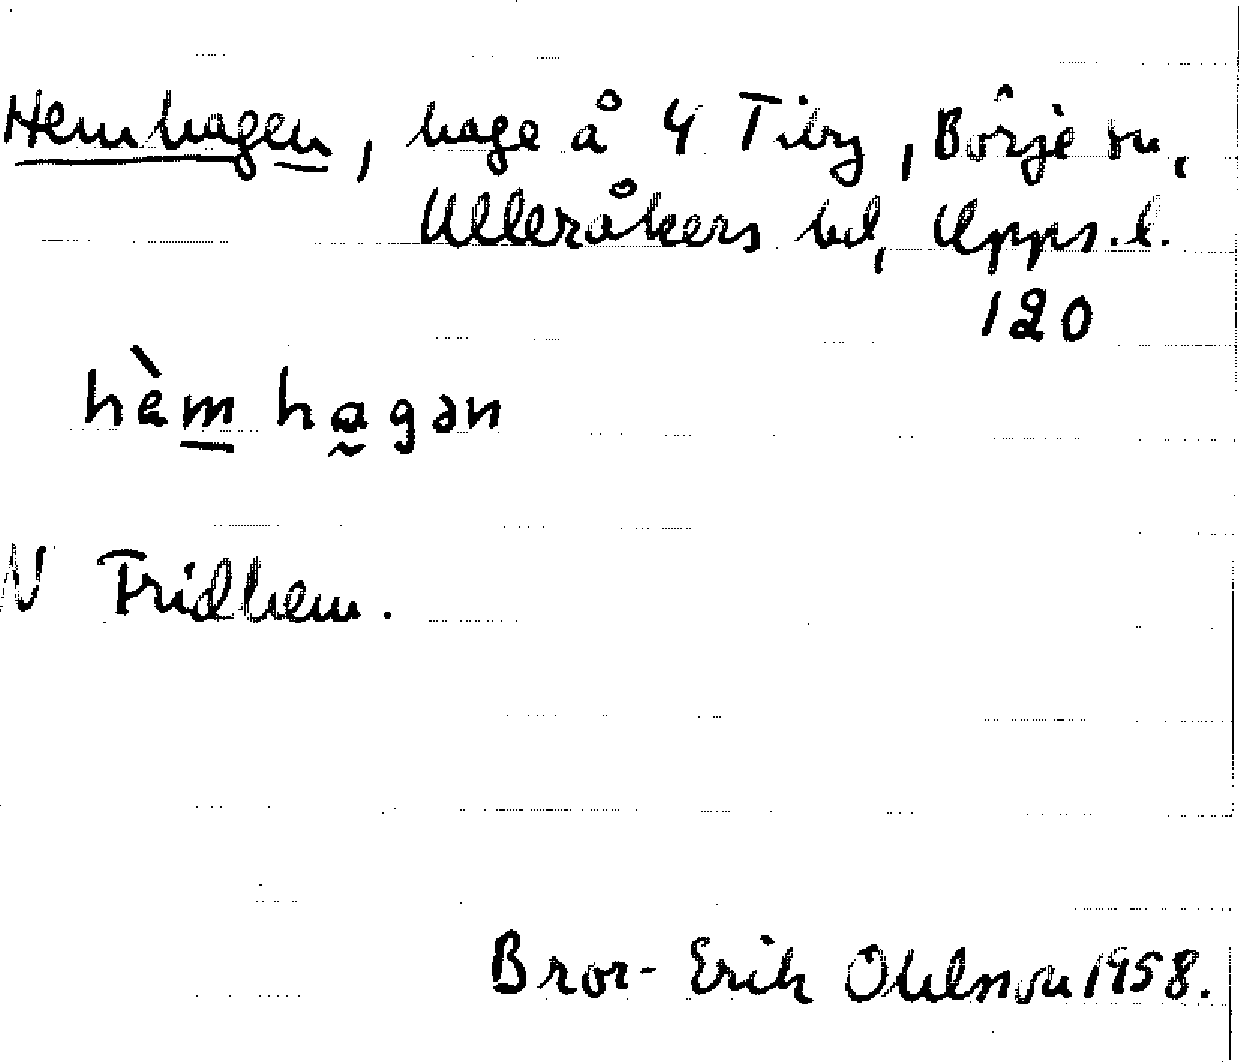 Hemhagen, hage å 4 Tiby, Börje sn,
Ulleråkers hd, Upps. l.
120
hèm hagən
N Fridhem.
Bror-Erik Ohlson 1958.